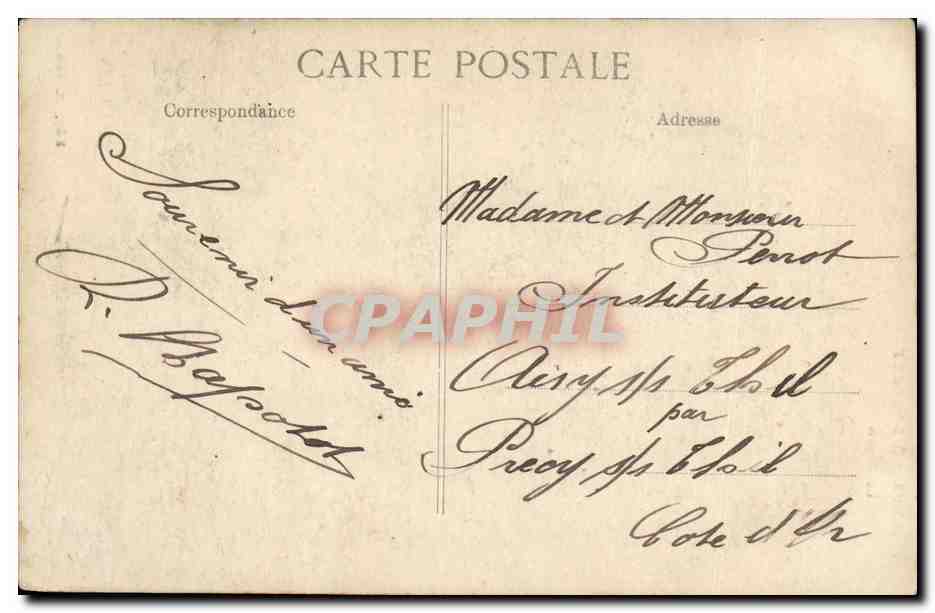 CARTE POSTALE
Correspondance
Souvenir d'un ami.
R. Massotot
Adresse
Madame et Monsieur
Perrot
Instituteur
Aisy s/s Thil
par
Précy s/s Thil
Cote d'Or
CPAPHIL